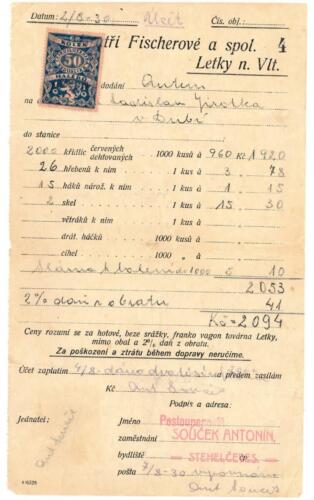 Datum: 2/8-30 Účet Čís. obj.:
tří Fischerové a spol. 4
Letky n. Vlt.
KOLEK
50
HALÉŘŮ
dodání Autem
na Ladislav
v Dubí
do stanice
2000 křidlic červených dehtovaných 1000 kusů à 960 Kč 1920
26 hřebenů k nim 1 kus à 3 78
15 háků nárož. k nim 1 kus à 1 15
2 skel 1 kus à 15 30
větráků k nim 1 kus à
drát. háčků 1000 kusů à
cihel 1000 kusů à
Sláma k balení do 1000 5 10
2053
2% daň z obratu 41
Kč = 2094
Ceny rozumí se za hotové, beze srážky, franko vagon továrna Letky,
mimo obal a 2% daň z obratu.
Za poškození a ztrátu během dopravy neručíme.
Účet zaplatím 7/8 - předem zasílám
Kč Ant Souček
Podpis a adresa:
Jednatel: jméno
zaměstnání SOUČEK ANTONÍN,
bydliště STEHELČEVES.
pošta 7/8-30 vyrovnáno
Ant Souček
Ant Souček